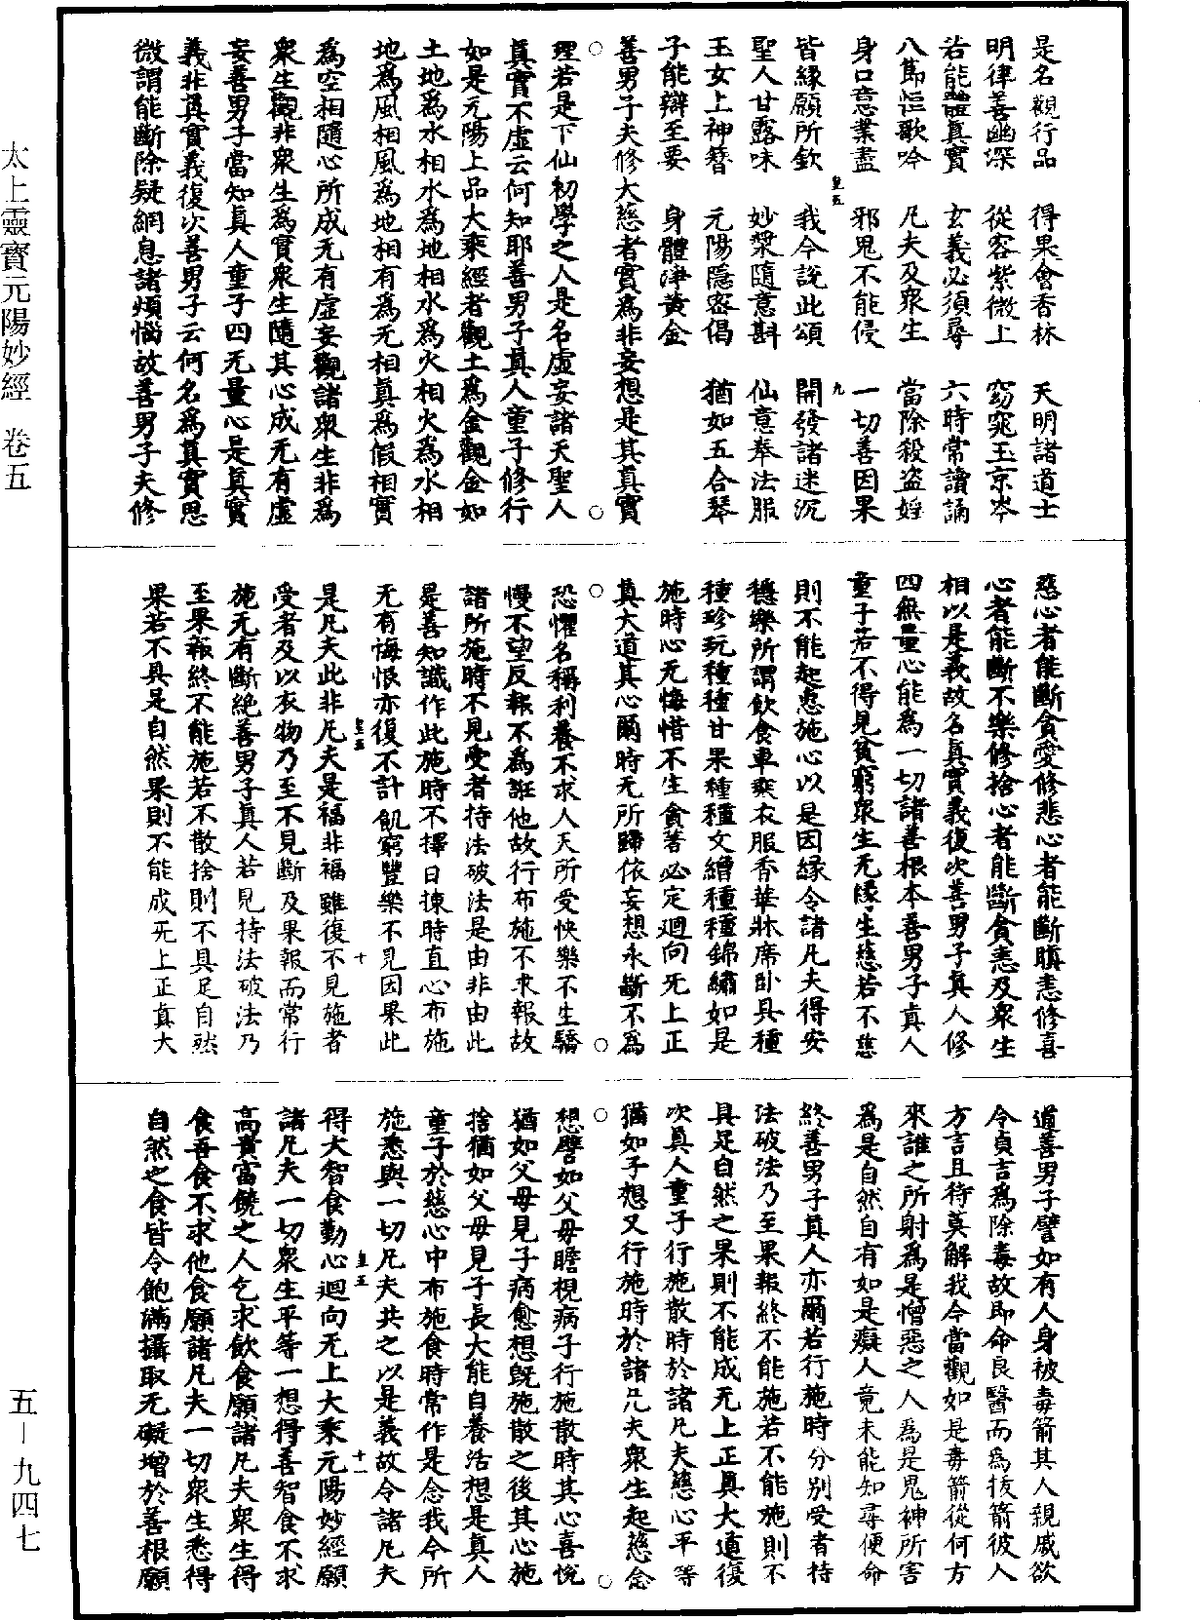 是名觀行品　得果會香林　天明諸道士
明律善幽深　從容紫微上　窈窕玉京岑
若能體真實　玄義必須尋　六時常讀誦
八節恒歌吟　凡夫及衆生　當除殺盜婬
身口意業盡　邪鬼不能侵　一切善因果
皇五　九
皆緣願所欽　我今說此頌　開發諸迷沉
聖人甘露味　妙漿隨意斟　仙意奉法服
玉女上神簪　元陽隱密倡　猶如五合琴
子能辯至要　身體淨黃金
善男子夫修大慈者實爲非妄想是其真實
理若是下仙初學之人是名虛妄諸天聖人
真實不虛云何知耶善男子真人童子修行
如是元陽上品大乘經者觀土爲金觀金如
土地爲水相水爲地相水爲火相火爲水相
地爲風相風爲地相有爲无相真爲假相實
爲空相隨心所成无有虛妄觀諸衆生非爲
衆生觀非衆生爲實衆生隨其心成无有虛
妄善男子當知真人童子四无量心是真實
義非真實義復次善男子云何名爲真實思
微謂能斷除疑網息諸煩惱故善男子夫修
慈心者能斷貪愛修悲心者能斷瞋恚修喜
心者能斷不樂修捨心者能斷貪恚及衆生
相以是義故名真實義復次善男子真人修
四無量心能爲一切諸善根本善男子真人
童子若不得見貧窮衆生无緣生慈若不慈
則不能起惠施心以是因緣令諸凡夫得安
穩樂所謂飲食車乘衣服香華牀席臥具種
種珍玩種種甘果種種文繒種種錦繡如是
施時心无悔惜不生貪著必定迴向无上正
真大道其心爾時无所歸依妄想永斷不爲
恐懼名稱利養不求人天所受快樂不生驕
慢不望反報不爲誑他故行布施不求報故
諸所施時不見受者持法破法是由非由此
是善知識作此施時不擇日揀時直心布施
无有悔恨亦復不計飢窮豐樂不見因果此
皇五　十
是凡夫此非凡夫是福非福雖復不見施者
受者及以衣物乃至不見斷及果報而常行
施无有斷絶善男子真人若見持法破法乃
至果報終不能施若不散捨則不具足自然
果若不具是自然果則不能成无上正真大
道善男子譬如有人身被毒箭其人親戚欲
令貞吉爲除毒故即命良醫而爲拔箭彼人
方言且待莫解我今當觀如是毒箭從何方
來誰之所射爲是憎惡之人爲是鬼神所害
爲是自然自有如是癡人竟未能知尋便命
終善男子真人亦爾若行施時分別受者持
法破法乃至果報終不能施若不能施則不
具足自然之果則不能成无上正真大道復
次真人童子行施散時於諸凡夫慈心平等
猶如子想又行施時於諸凡夫衆生起慈念
想譬如父母瞻視病子行施散時其心喜悅
猶如父母見子病愈想既施散之後其心施
捨猶如父母見子長大能自養活想是真人
童子於慈心中布施食時常作是念我今所
施悉與一切凡夫共之以是義故令諸凡夫
皇五　十一
得大智食勤心迴向无上大乘元陽妙經願
諸凡夫一切衆生平等一想得善智食不求
高貴富饒之人乞求飲食願諸凡夫衆生得
食吾食不求他食願諸凡夫一切衆生悉得
自然之食皆令飽滿攝取无礙增於善根願
太上靈寶元陽妙經　卷五
五－九四七